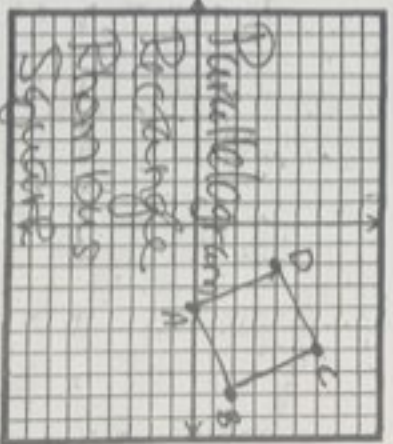 Parallelogram
Rectangle
Rhombus
Square
D
C
A
B